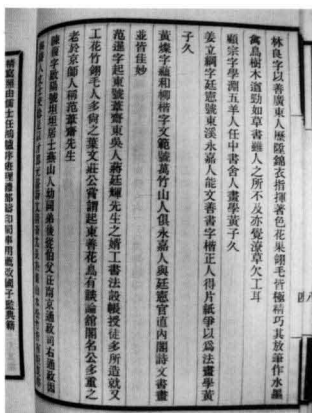 林良字以善廣東人歷陞錦衣指揮著色花果翎毛皆極精巧其放筆作水墨
禽鳥樹木遒勁如草書雖人之所不及亦覺潦草欠工耳
顧宗字學淵五羊人任中書舍人畫學黃子久
姜立綱字廷憲號東溪永嘉人能文善書字楷正人得片紙爭以為法畫學黃
子久
黃璨字蘊和柳楷字文範號萬竹山人俱永嘉人與廷憲官直內閣詩文書畫
並皆佳妙
范暹字起東號葦齋東吳人蔣廷暉先生之婿工書法設帳授徒多所造就又
工花竹翎毛人多尚之葉文莊公嘗謂起東善花鳥有談論館閣名公多重之
老於京師人稱范葦齋先生
陳復字啟陽號坦坦居士燕山人幼孤弟後從伯父正南京通政司右通政